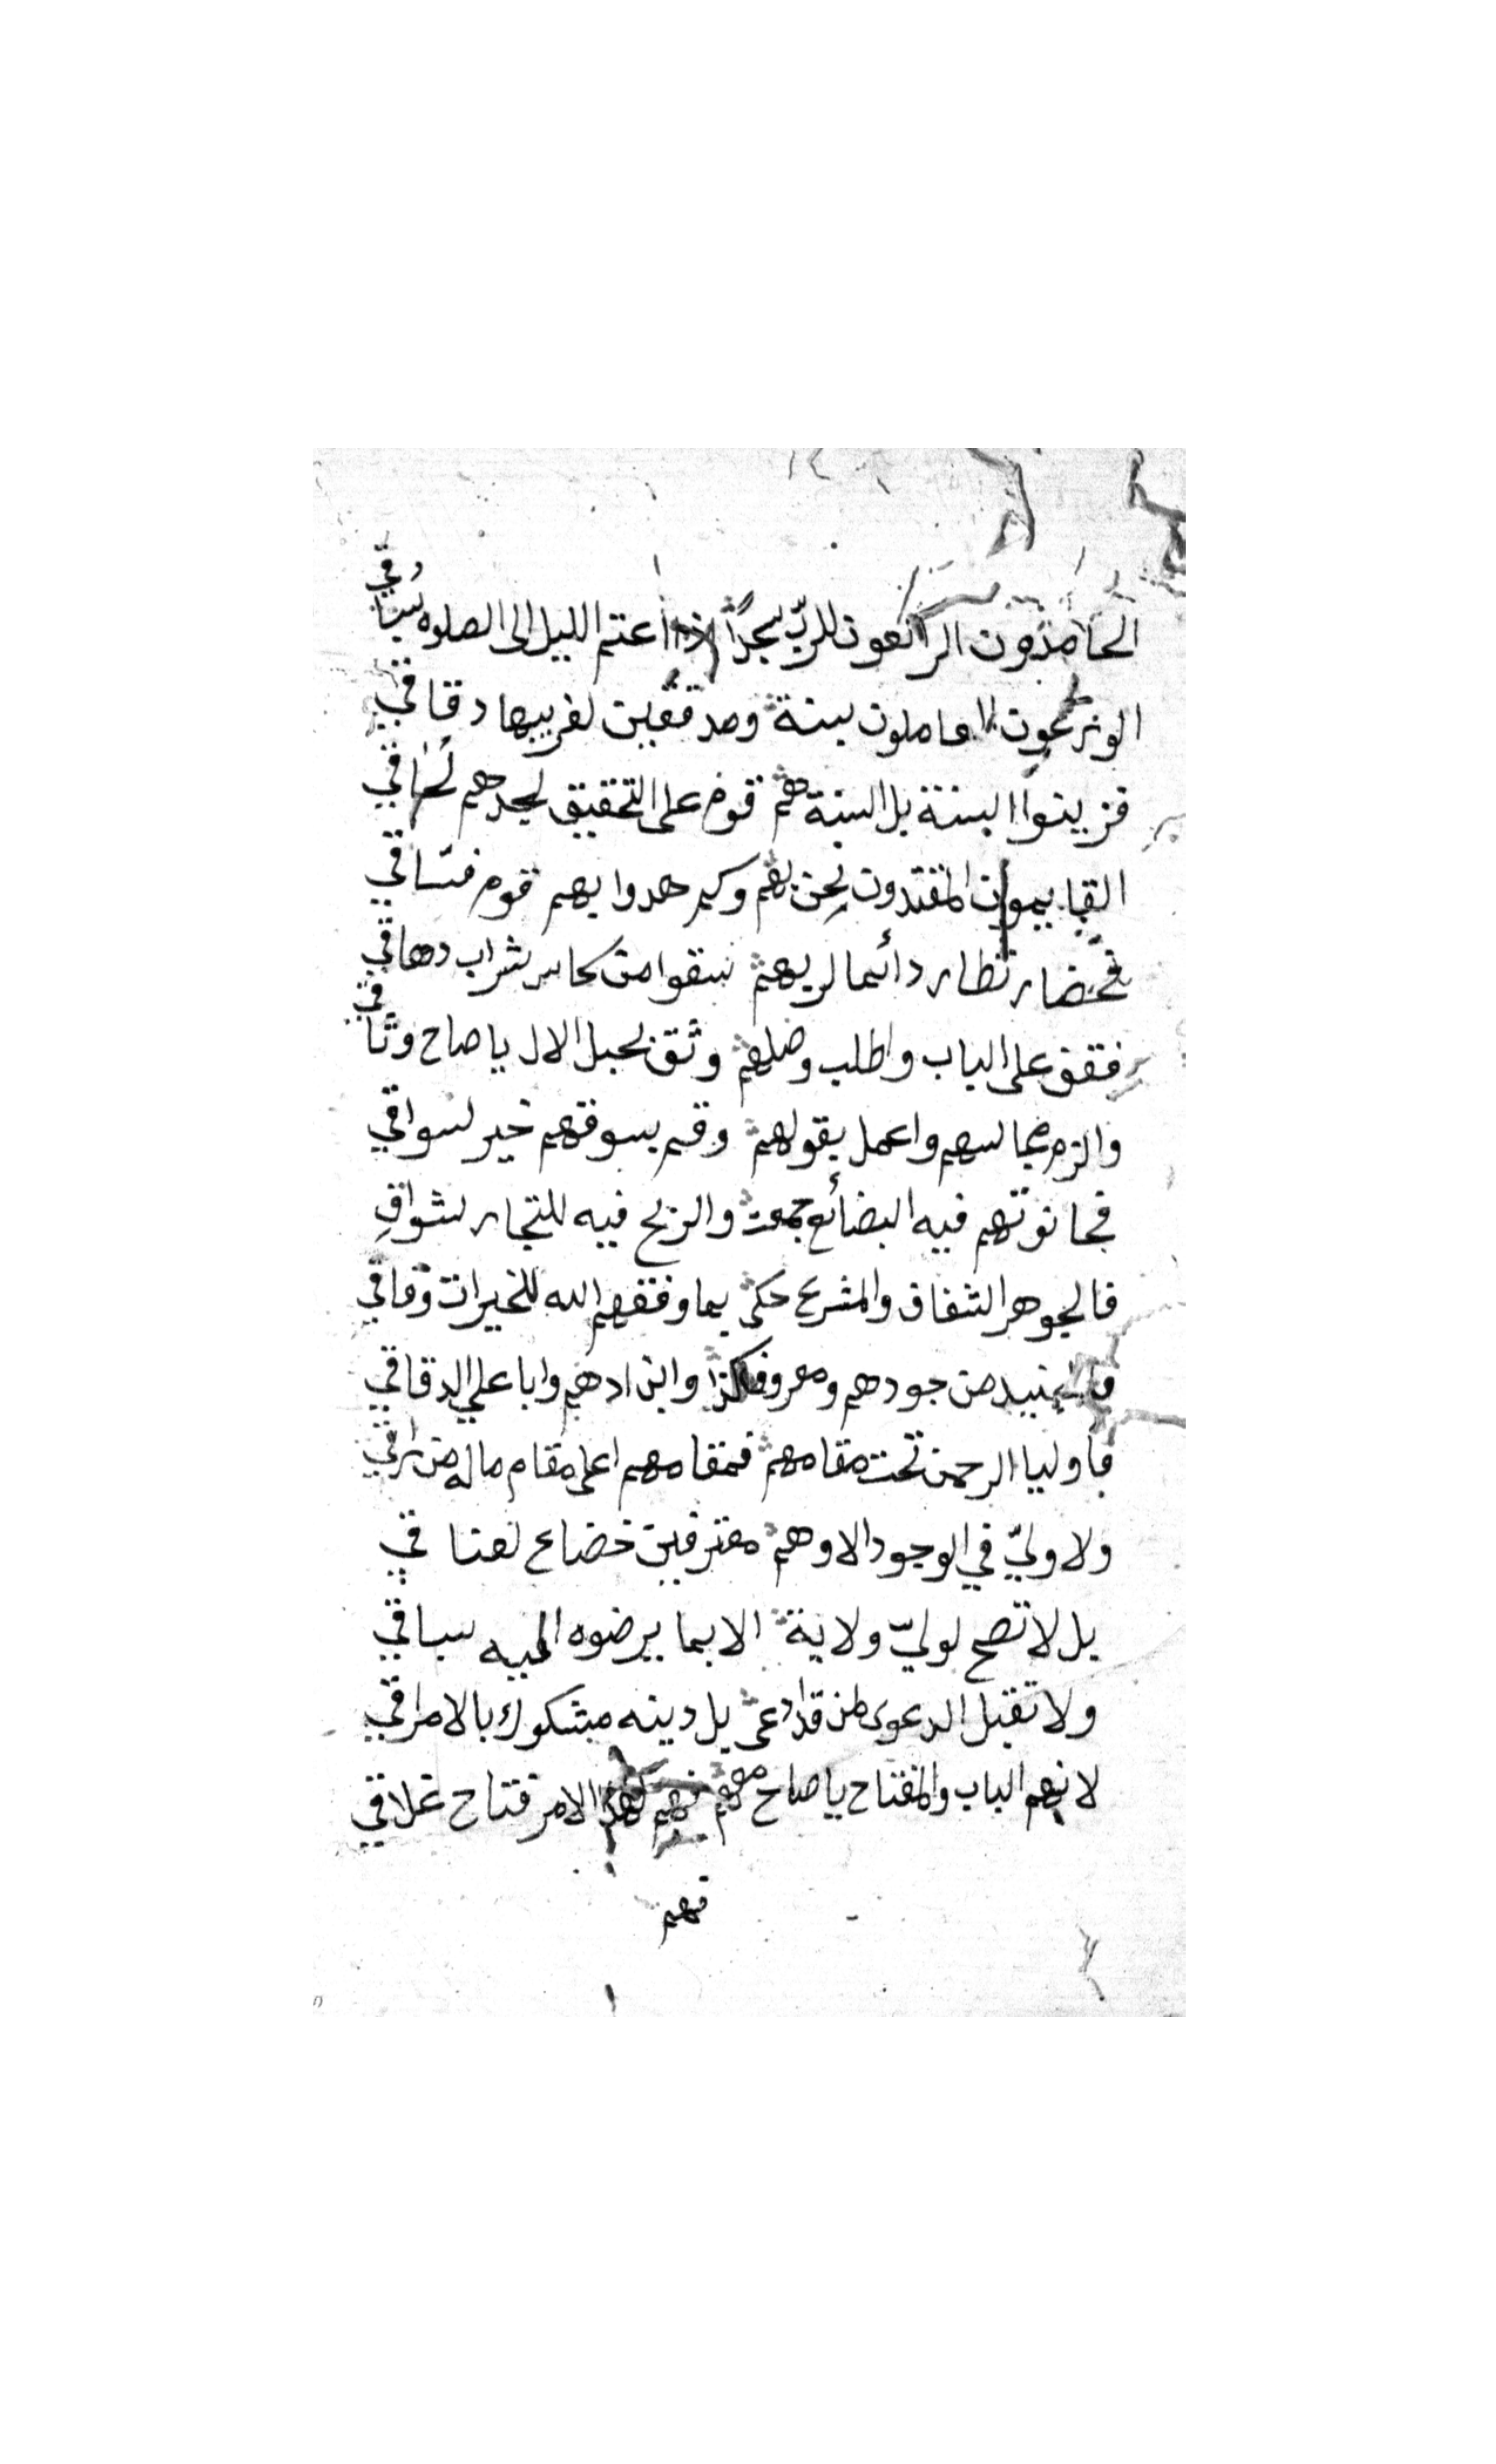 الحامدون الراكعون للربّ سجدًا اذا اعتم الليل الى الصلوه سباقي
الورعون العاملون بسنة ومدققين لغريبها دقاقي
فزينوا السنة بل السنة هم قوم على التحقيق لجدهم لحاقي
القايمون المقتدون بهم وكم هدوا بهم قوم فساقي
حضار نظار دائما لربهم سقوا من كاس شراب دهاقي
فقف على الباب واطلب وصلهم وثق بحبل الال يا صاح وثاقي
والزم مجالسهم واعمل بقولهم وقم بسوقهم خير لسواقي
فحانوتهم فيه البضائع جمعت والربح فيه للتجار لشواقِ
فالجوهر الشفاف والمشرع حكى بما وفقهم الله للخيرات وفاقي
فالجنيد من جودهم ومعروف كذا وابن ادهم وابا علي الدقاقي
فاوليا الرحمن تحت مقامهم فمقامهم اعلى مقام ماله من راقي
ولا وليّ في الوجود الا وهم معترفين خضاع لعناقي
بل لا تصح لوليّ ولاية الا بما يرضوه اليه سباقي
ولا تقبل الدعوى لمن قد ادعى بل دينه مشكوك بالامراقي
لانهم الباب والمفتاح يا صاح معهم فهم لهذا الامر فتاح غلاقي
فهم